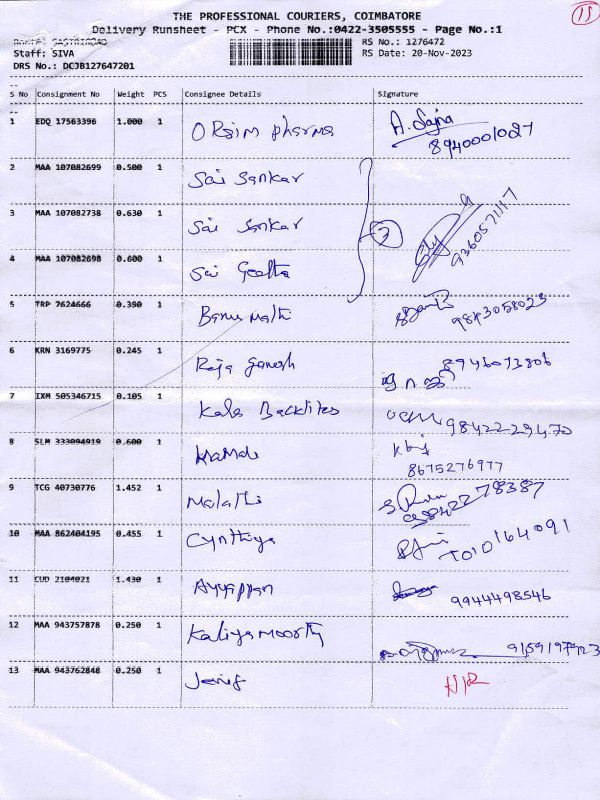 15
THE PROFESSIONAL COURIERS, COIMBATORE
Delivery Runsheet - PCX - Phone No.:0422-3505555 - Page No.:1
Staff: SIVA
RS No.: 1276472
DRS No.: DCJB127647201
RS Date: 20-Nov-2023
S No Consignment No Weight PCS Consignee Details Signature
1 EDQ 17563396 1.000 1 Pharma A. Sajna
8940001027
2 MAA 107082699 0.500 1 Sai Sankar
3 MAA 107082738 0.630 1 Sai Sankar 3 9360571117
4 MAA 107082698 0.600 1 Sai Geetha
5 TRP 7624666 0.390 1 Banu Mathi
6 KRN 3169775 0.245 1 Raja Ganesh 8946073806
7 IXM 505346715 0.105 1 Kala 9842229470
8 SLM 333094919 0.600 1 Kamala
8675276977
9 TCG 40730776 1.452 1 Malathi
10 MAA 862404195 0.455 1 Cynthiya
11 CUD 2104021 1.430 1 Ayyappan 9944498546
12 MAA 943757878 0.250 1 Kaliyamoorthy
13 MAA 943762848 0.250 1